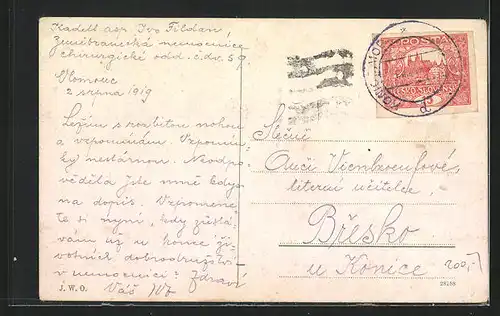 Kadett asp. Ivo Fildan,
Zeměbranecká nemocnice
chirurgické odd. č. dv. 59.
Olomouc
2 srpna 1919
Ležím s rozbitou nohou
a vzpomínám. Vzpomín-
ky nestárnou. Neodpo-
věděla jste mně kdysi
na dopis. Vzpomene-
te si nyní, kdy zůstá-
vám už u konce ži-
votních dobrodružství-
v nemocnici? Zdraví
Váš Ivo
J. W. O.
POŠTA
ČESKO-SLOV
KONICE
Slečně
literní učitelce,
Břesko
u Konice
200,-
28188